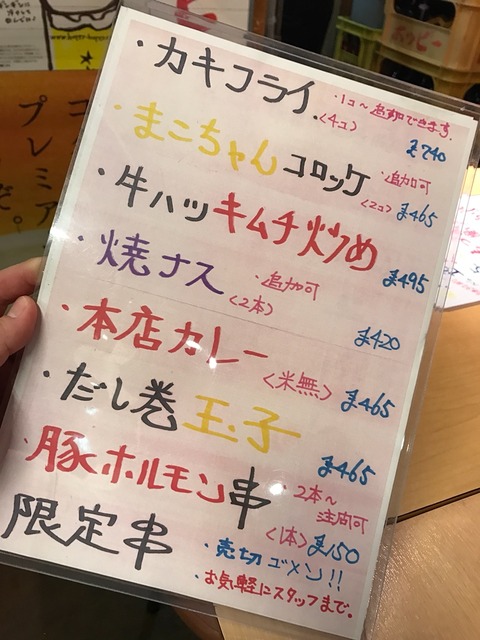 ・カキフライ
・1コ〜追加できます。
〈4コ〉
まこちゃんコロッケ
・追加可
〈2コ〉
¥465
・牛ハツキムチ炒め
¥495
・焼ナス
・追加可
〈2本〉
¥420
・本店カレー
〈米無〉
¥465
・だし巻玉子
¥465
・豚ホルモン串
・2本〜
注文可
〈1本〉¥150
限定串
・売切ゴメン!!
・お気軽にスタッフまで。
プレミア